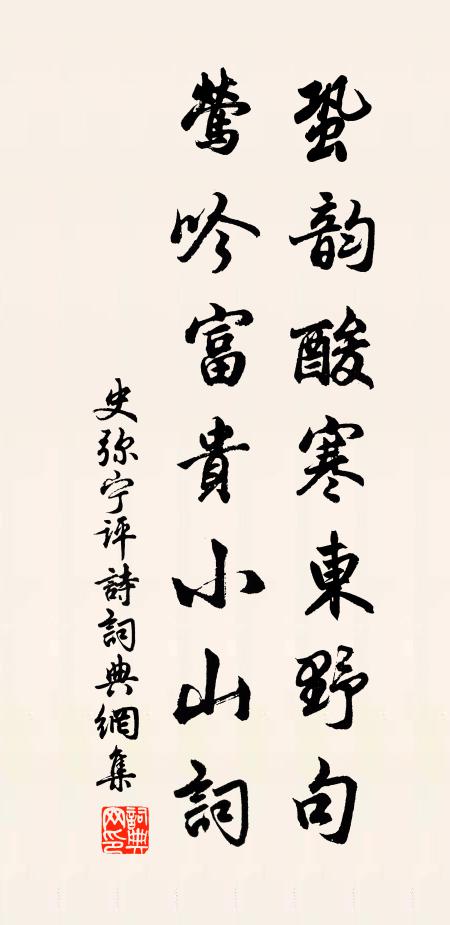 蛩韵酸寒東野句
鶯吟富貴小山詞
史弥宁评詩詞典網集
詞典網印